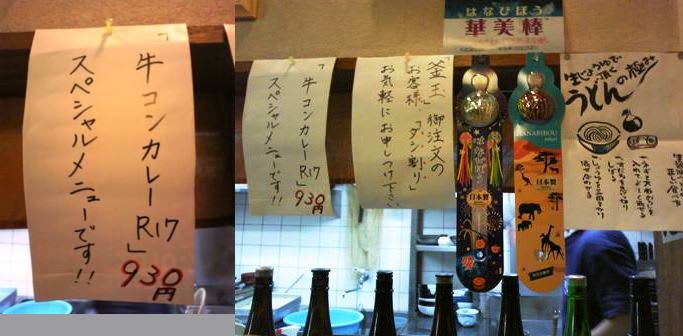 「牛コンカレーR17」
930円
スペシャルメニューです!!
はなびぼう
華美棒
「牛コンカレーR17」
930円
スペシャルメニューです!!
「釜玉」御注文の
お客様「ダシ割り」
お気軽にお申しつけ下さい
日本製
HANABIBOU
日本製
生じょうゆで
頂く
うどんの極み